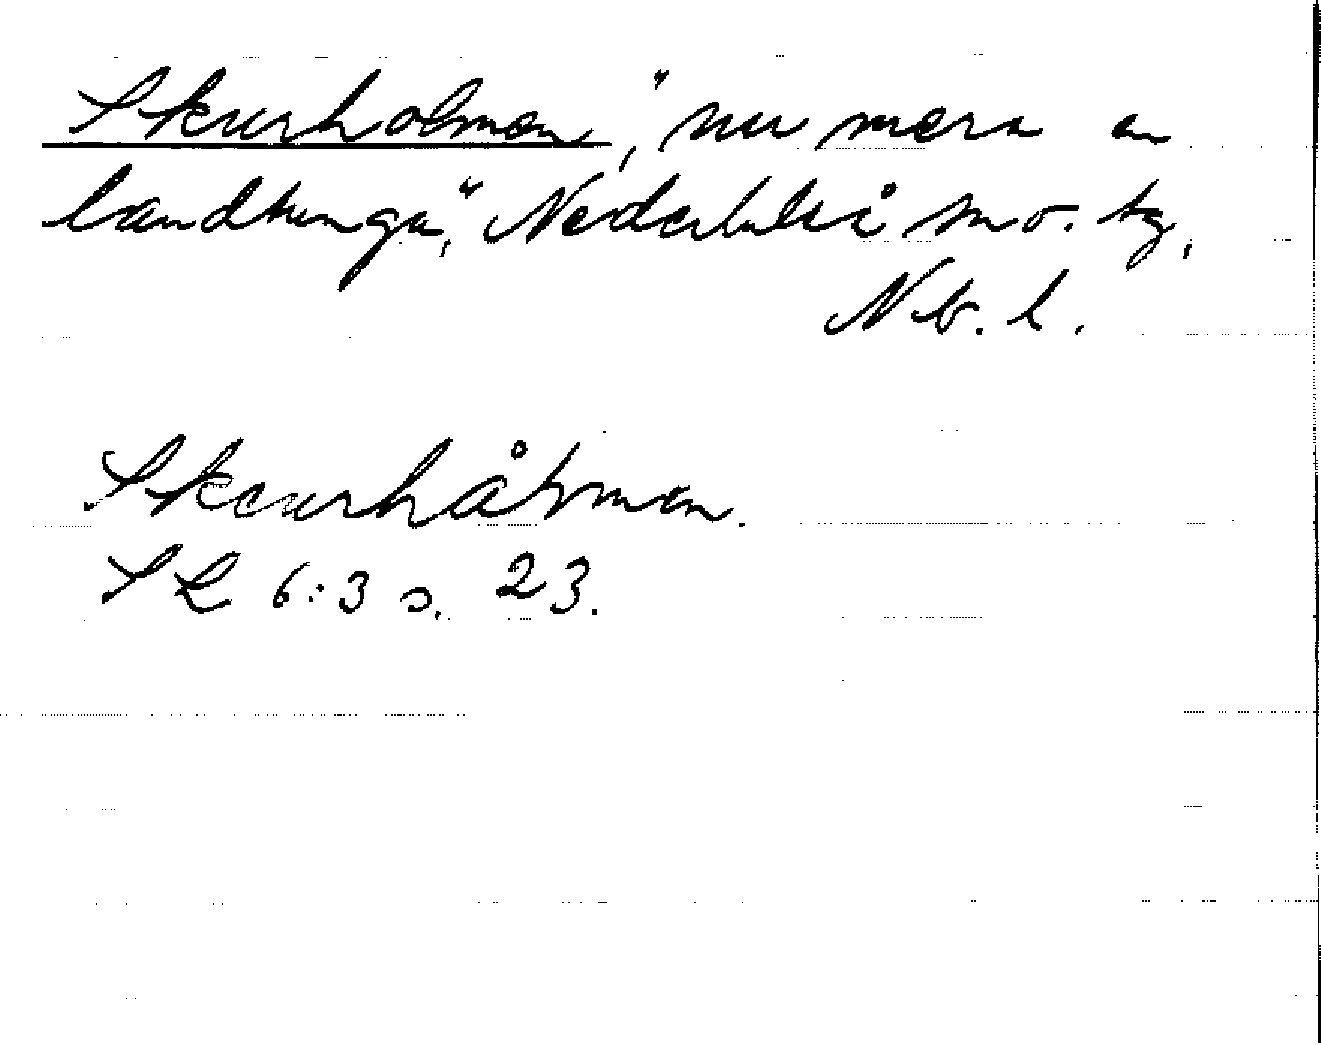 Skurholmen, "nu mera en
landtunga", Nederluleå sn o. tg,
Nb. l.
Skeurhåhmen.
SL 6:3 s. 23.